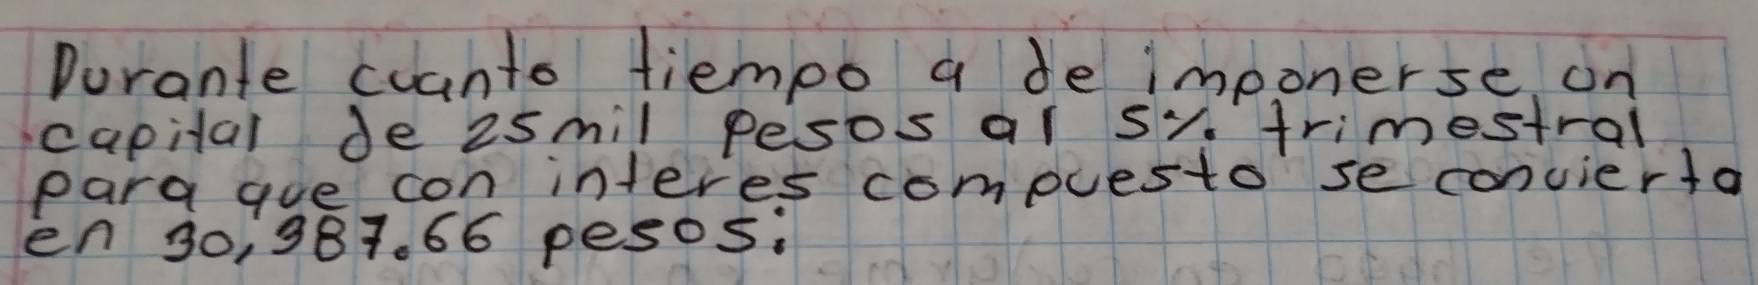 Durante cuanto tiempo a de imponerse un
capital de 25 mil pesos al 5% trimestral
para que con interes compuesto se convierta
en 30,387.66 pesos: